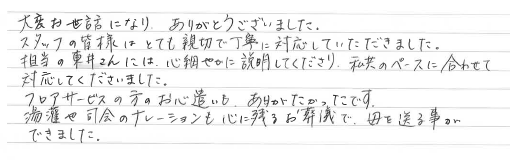 大変お世話になり、ありがとうございました。
スタッフの皆様はとても親切で丁寧に対応していただきました。
担当の東井さんには、心細やかに説明してくださり、私共のペースに合わせて
対応してくださいました。
フロアサービスの方のお心遣いも、ありがたかったです。
湯灌や司会のナレーションも心に残るお葬儀で、母を送る事が
できました。